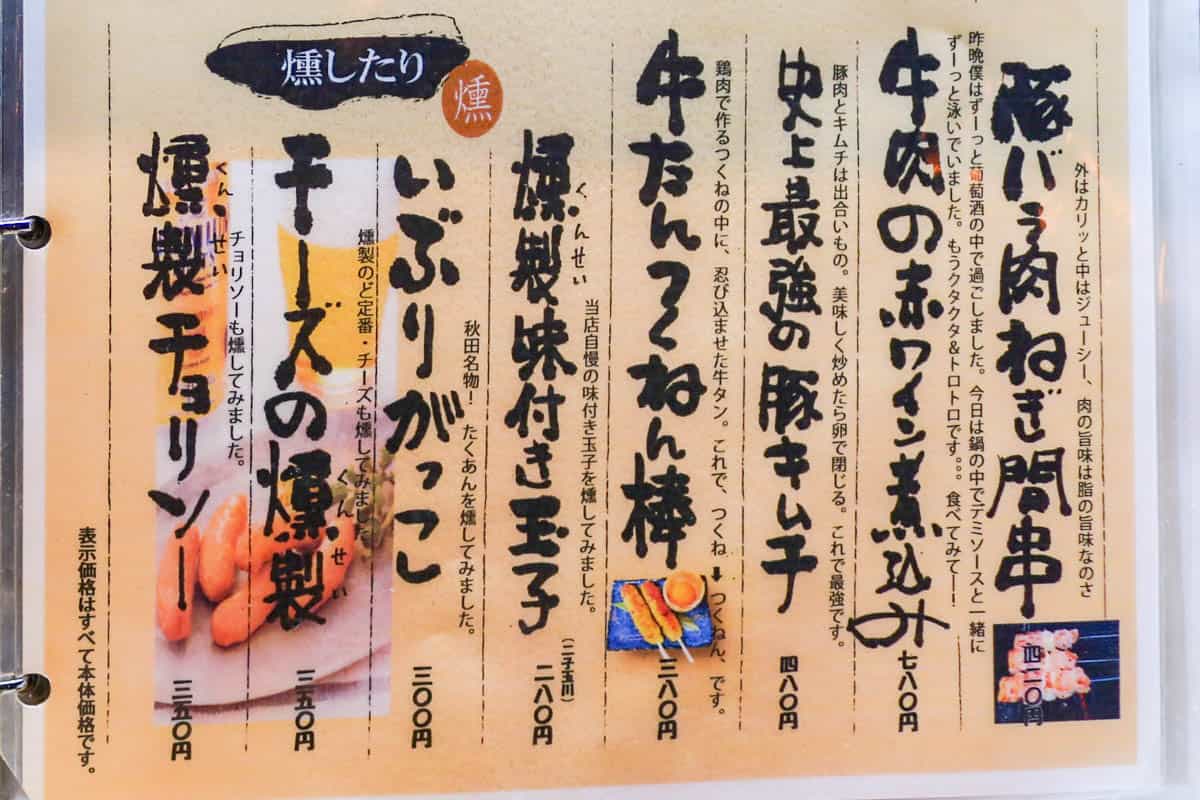 外はカリッと中はジューシー、肉の旨味は脂の旨味なのさ
豚バラ肉ねぎ間串
四二〇円
昨晩僕はずーっと葡萄酒の中で過ごしました。今日は鍋の中でデミソースと一緒に
ずーっと泳いでいました。もうクタクタ&トロトロです。。。食べてみてー!
牛肉の赤ワイン煮込み
七八〇円
豚肉とキムチは出合いもの。美味しく炒めたら卵で閉じる。これで最強です。
史上最強の豚キムチ
四八〇円
鶏肉で作るつくねの中に、忍び込ませた牛タン。これで、つくね➡つくねん、です。
牛たんつくねん棒
三八〇円
燻したり
燻
当店自慢の味付き玉子を燻してみました。
くんせい
燻製味付き玉子
(二子玉川)
二八〇円
秋田名物!たくあんを燻してみました。
いぶりがっこ
三〇〇円
燻製のど定番・チーズも燻してみました
チーズの燻製
くんせい
三五〇円
チョリソーも燻してみました。
くんせい
燻製チョリソー
三五〇円
表示価格はすべて本体価格です。